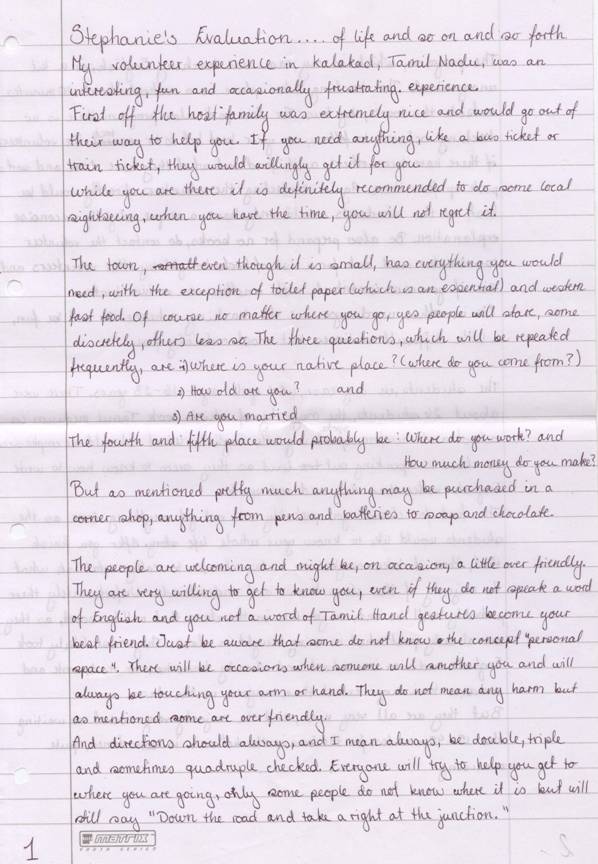 Stephanie's Evaluation.... of life and so on and so forth
My volunteer experience in Kalakad, Tamil Nadu, was an
interesting, fun and occasionally frustrating. experience.
First off the host family was extremely nice and would go out of
their way to help you. If you need anything, like a bus ticket or
train ticket, they would willingly get it for you.
While you are there it is definitely recommended to do some local
sightseeing, when you have the time, you will not regret it.
The town, small even though it is small, has everything you would
need, with the exception of toilet paper (which is an essential) and western
fast food. Of course no matter where you go, yes people will stare, some
discretely, others less so. The three questions, which will be repeated
frequently, are 1) Where is your native place? (Where do you come from?)
2) How old are you? and
3) Are you married
The fourth and fifth place would probably be: Where do you work? and
How much money do you make?
But as mentioned pretty much anything may be purchased in a
corner shop, anything from pens and batteries to soap and chocolate.
The people are welcoming and might be, on occasion, a little over friendly.
They are very willing to get to know you, even if they do not speak a word
of English and you not a word of Tamil Hand gestures become your
best friend. Just be aware that some do not know the concept "personal
space". There will be occasions when someone will smother you and will
always be touching your arm or hand. They do not mean any harm but
as mentioned some are over friendly.
And directions should always, and I mean always, be double, triple
and sometimes quadruple checked. Everyone will try to help you get to
where you are going, only some people do not know where it is but will
still say "Down the road and take a right at the junction."
1
matrix